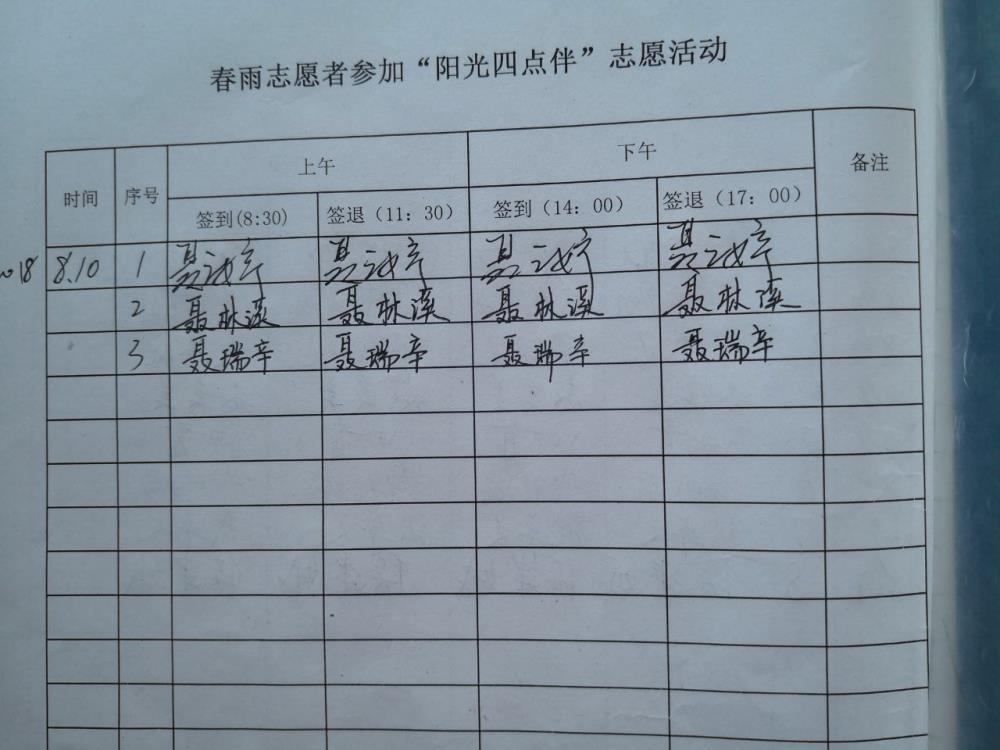 春雨志愿者参加“阳光四点伴”志愿活动
时间 序号 上午 下午 备注
签到(8:30) 签退（11：30） 签到（14：00） 签退（17：00）
18 8.10 1
2 聂林溪 聂林溪 聂林溪 聂林溪
3 聂瑞辛 聂瑞辛 聂瑞辛 聂瑞辛